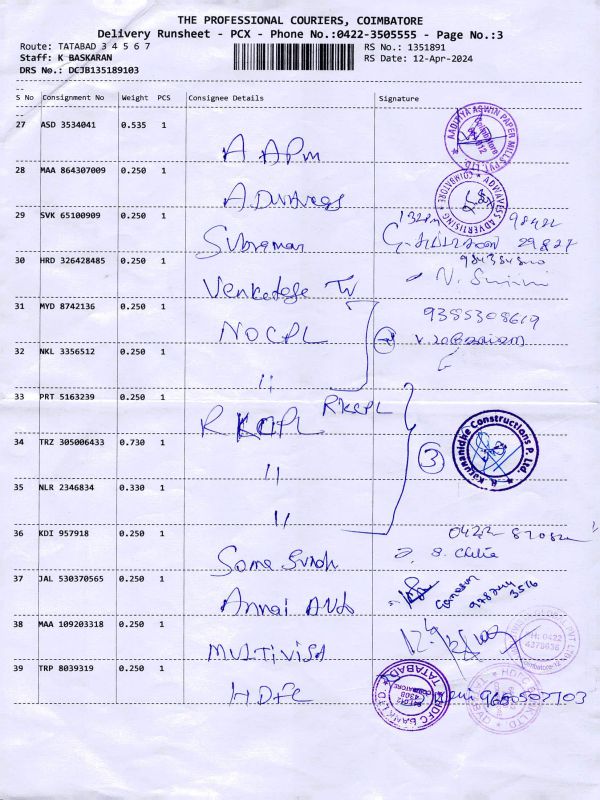 THE PROFESSIONAL COURIERS, COIMBATORE
Delivery Runsheet - PCX - Phone No.:0422-3505555 - Page No.:3
Route: TATABAD 3 4 5 6 7
RS No.: 1351891
Staff: K BASKARAN
RS Date: 12-Apr-2024
DRS No.: DCJB135189103
S No Consignment No Weight PCS Consignee Details Signature
27 ASD 3534041 0.535 1
A APM
AADHYA ASWIN PAPER MILLS PVT. LTD.
28 MAA 864307009 0.250 1
ADWAVESS ADVERTISING * COIMBATORE
29 SVK 65100909 0.250 1
Subraman
30 HRD 326428485 0.250 1
31 MYD 8742136 0.250 1
NOCPL
9385308619
32 NKL 3356512 0.250 1
"
33 PRT 5163239 0.250 1
RKCPL RKCPL
34 TRZ 305006433 0.730 1
"
3
R. Karunanidhe Constructions P. Ltd.
35 NLR 2346834 0.330 1
"
36 KDI 957918 0.250 1
37 JAL 530370565 0.250 1
Annai Auto
38 MAA 109203318 0.250 1
MULTIVISA
PH: 0422
4378636
39 TRP 8039319 0.250 1
HDFC
HDFC BANK LTD
TATABAD